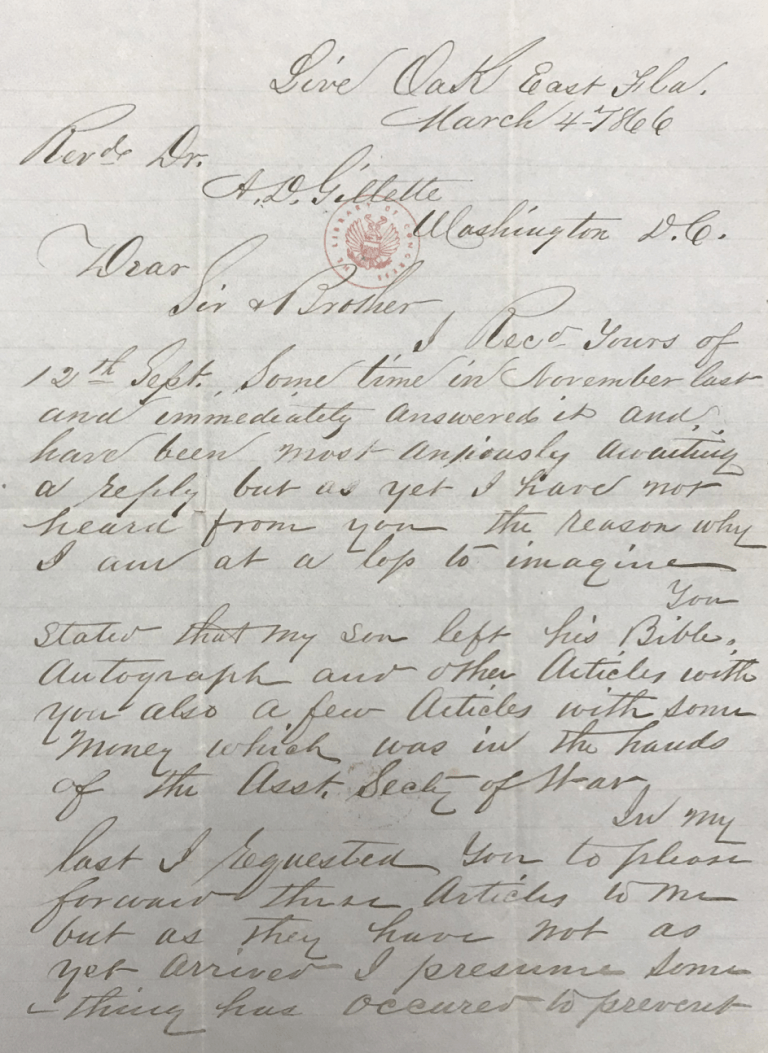 Live Oak East Fla.
March 4th 1866
Revd Dr.
A. D. Gillette
Washington D.C.
THE LIBRARY OF CONGRESS
Dear
Sir & Brother
I Recd Yours of
12th Sept. Some time in November last
and immediately answered it and
have been most anxiously awaiting
a reply but as yet I have not
heard from you the reason why
I am at a loss to imagine
You
stated that my son left his Bible,
Autograph and other Articles with
you also a few Articles with some
Money which was in the hands
of the Asst. Secty of War
In my
last I requested You to please
forward these Articles to me
but as they have not as
yet arrived I presume some
-thing has occured to prevent